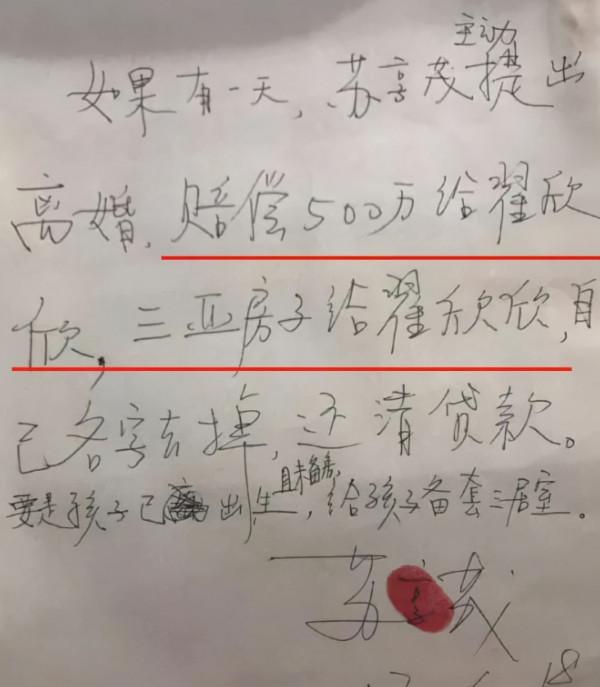 主动
如果有一天，苏享茂提出
离婚，赔偿500万给翟欣
欣，三亚房子给翟欣欣，自
己名字去掉，还清贷款。
且未备房
要是孩子已出生，给孩子备套三居室。
苏享茂
18